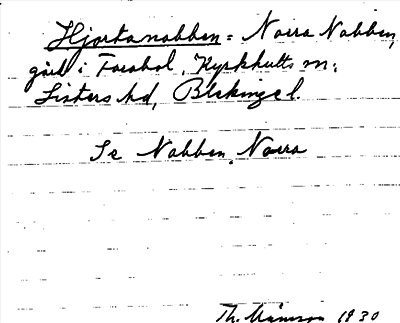 Hjortanabben = Norra Nabben,
gård i Farabol, Kyrkhults sn.
Listers hd, Blekinge l.
Se Nabben, Norra
Th. Månsson 1930